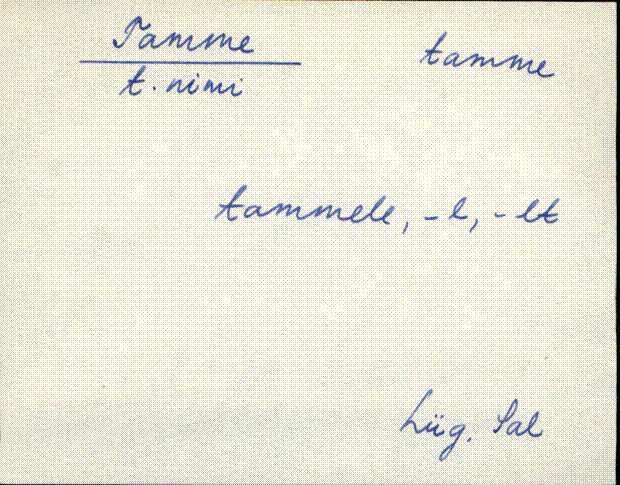 Tamme tamme
t. nimi
tammele, -l, -lt
Lüg. Sal